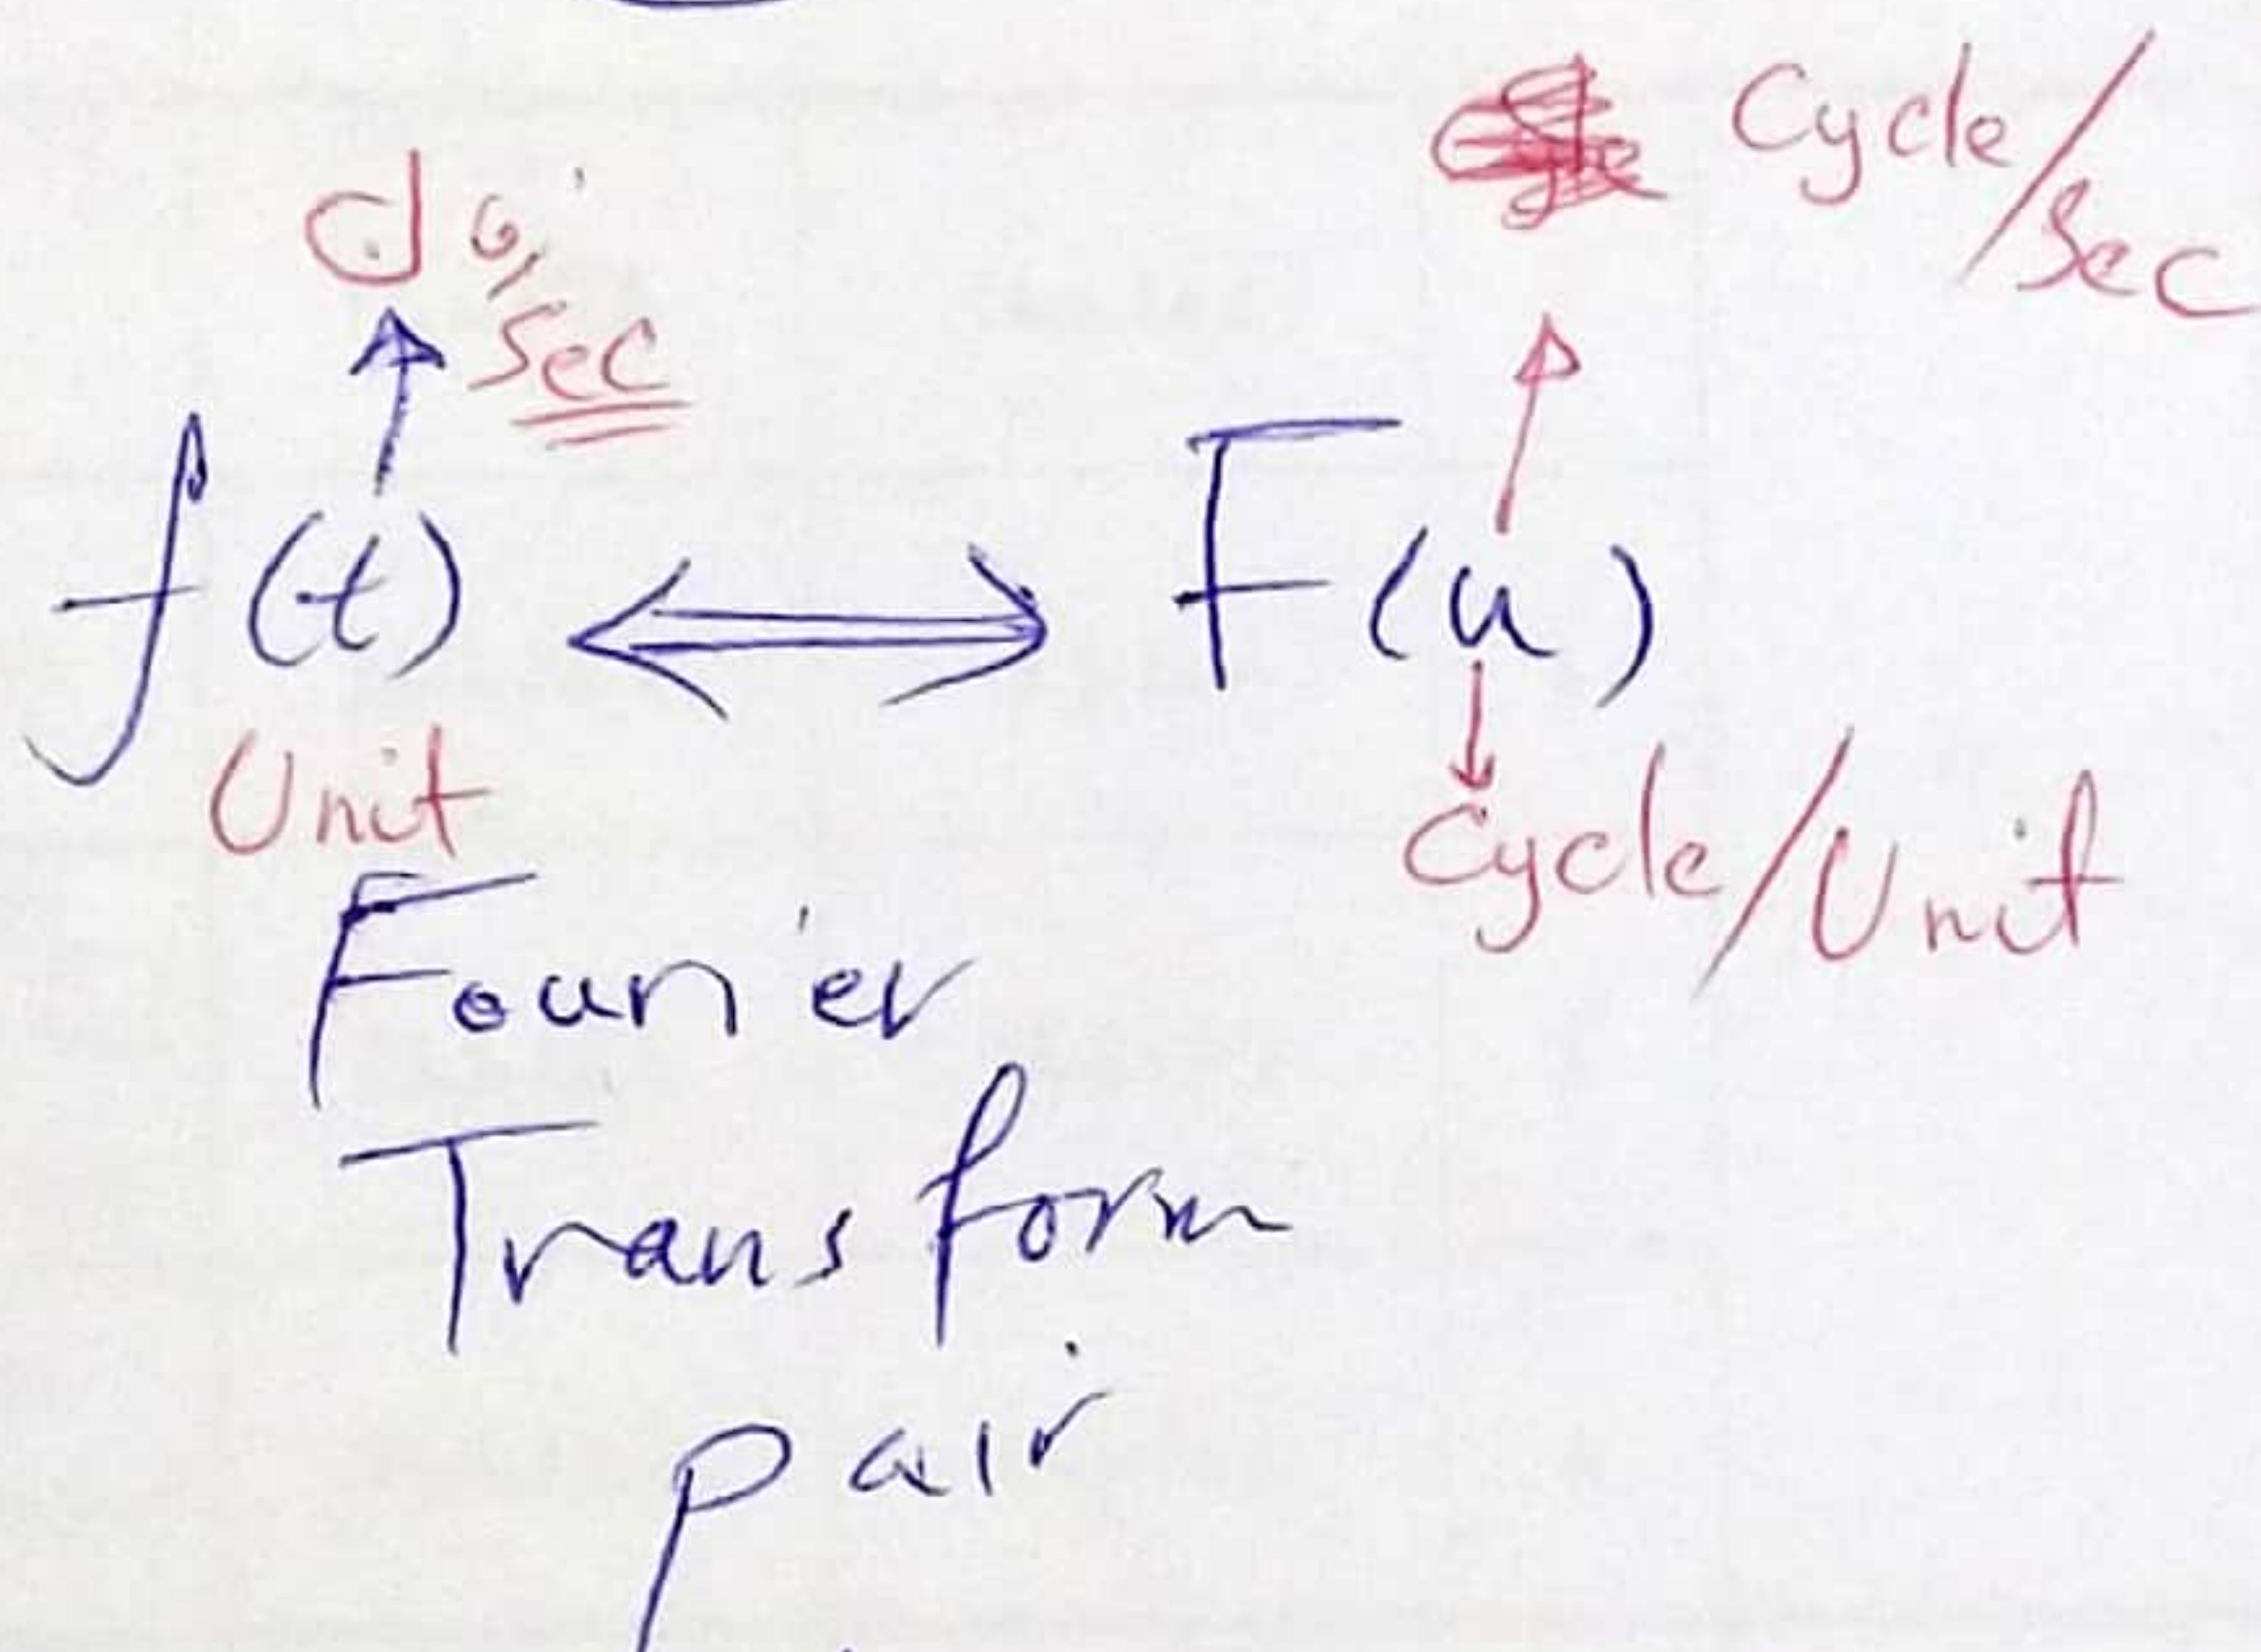 Cycle/
Sec
Sec
f(t) ⟺ F(u)
Unit
Cycle/Unit
Fourier
Transform
pair